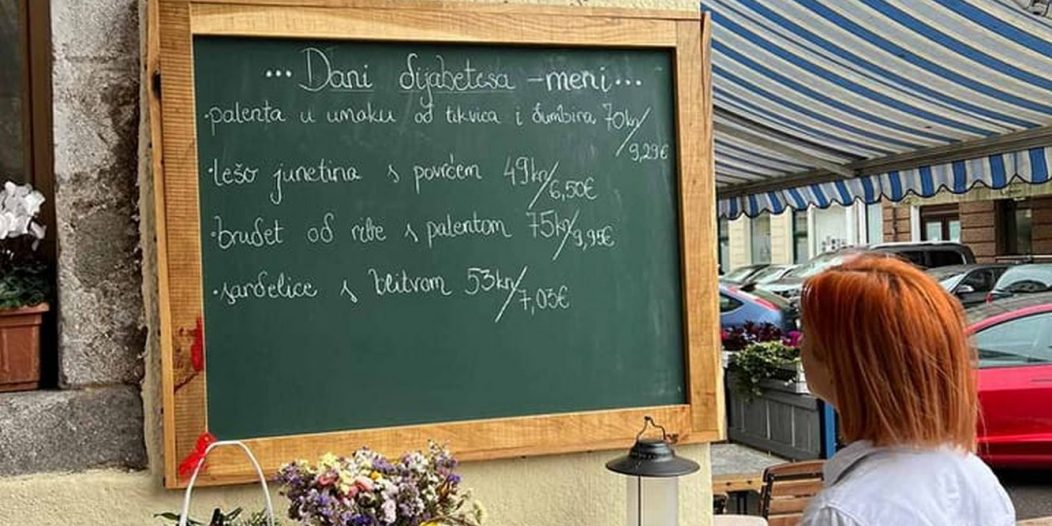 ... Dani dijabetesa - meni ...
• palenta u umaku od tikvica i đumbira 70kn/9,29€
• lešo junetina s povrćem 49kn/6,50€
• brudet od ribe s palentom 75kn/9,95€
• sardelice s blitvom 53kn/7,03€